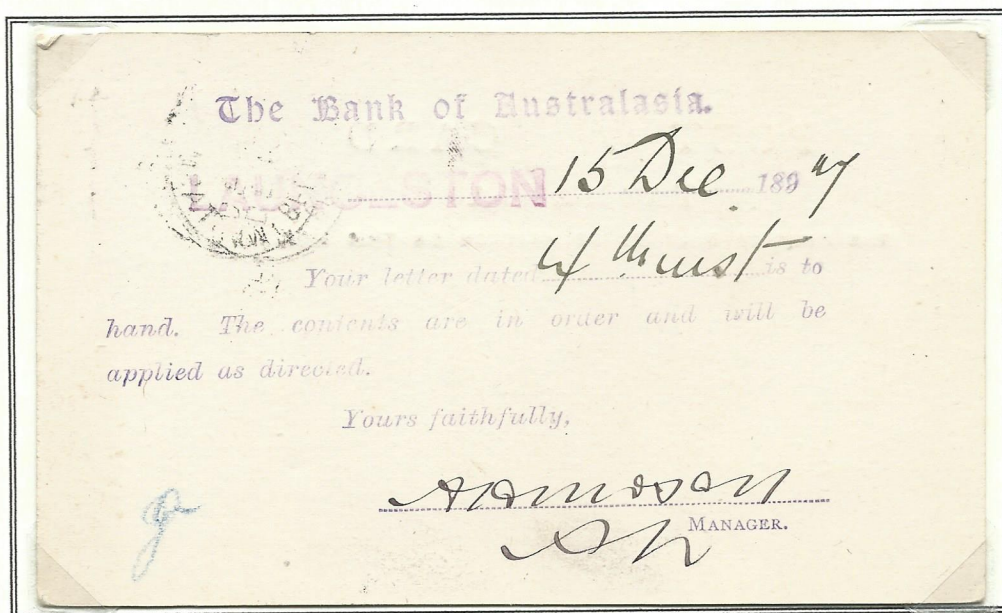 The Bank of Australasia.
LAUNCESTON 15 Dec 1897
Your letter dated 4th inst is to
hand. The contents are in order and will be
applied as directed.
Yours faithfully,
MANAGER.